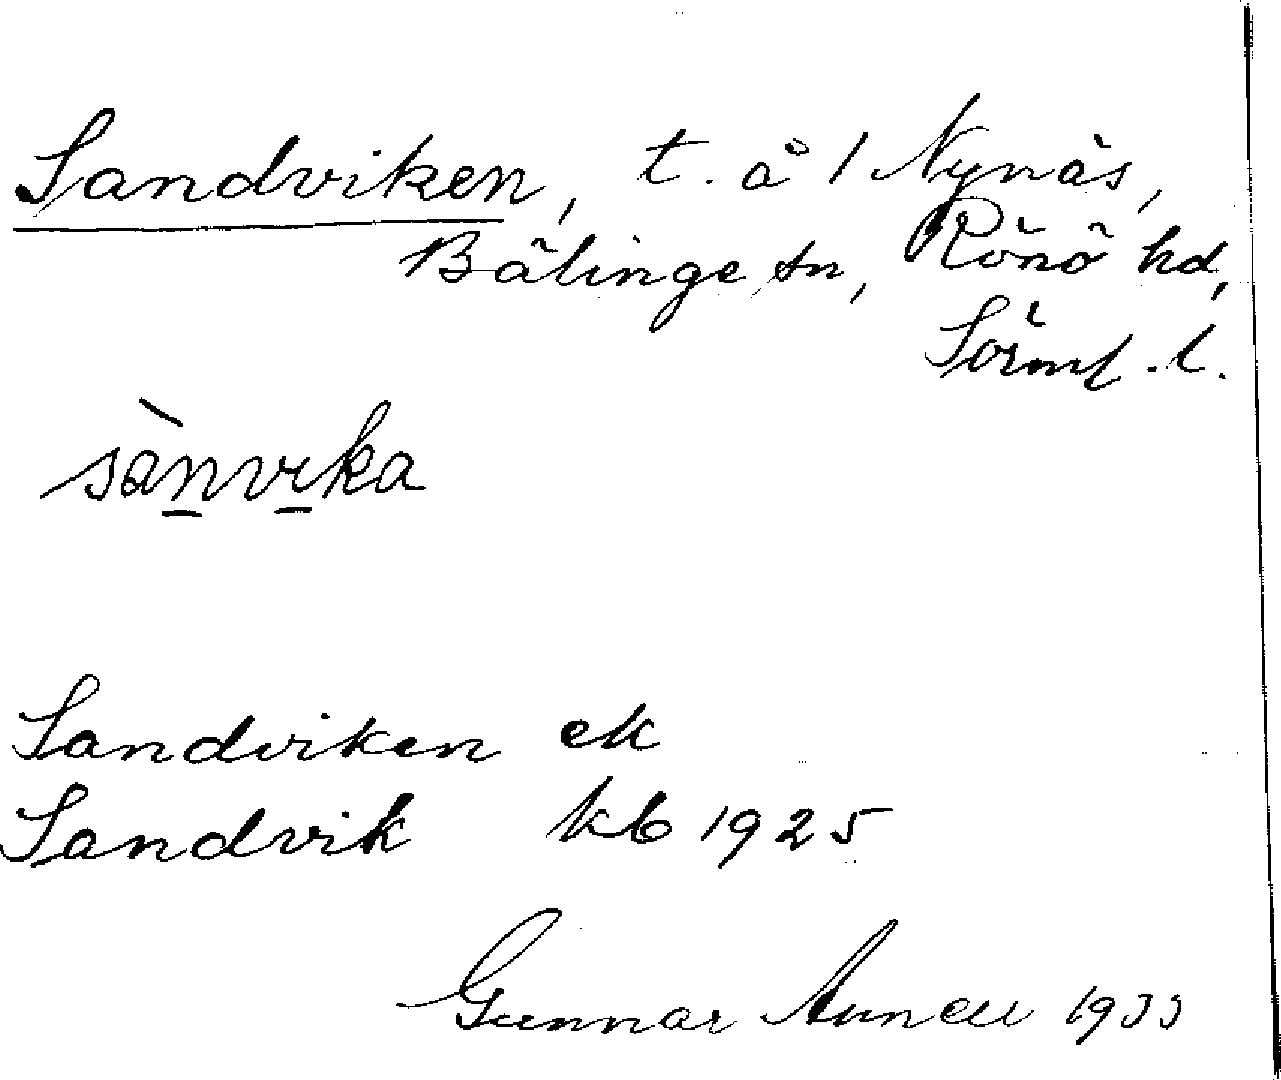 Sandviken, t. å 1 Nynäs,
Bälinge sn, Rönö hd,
Sörml. l.
sànvika
Sandviken ek
Sandvik kb 1925
Gunnar 1933